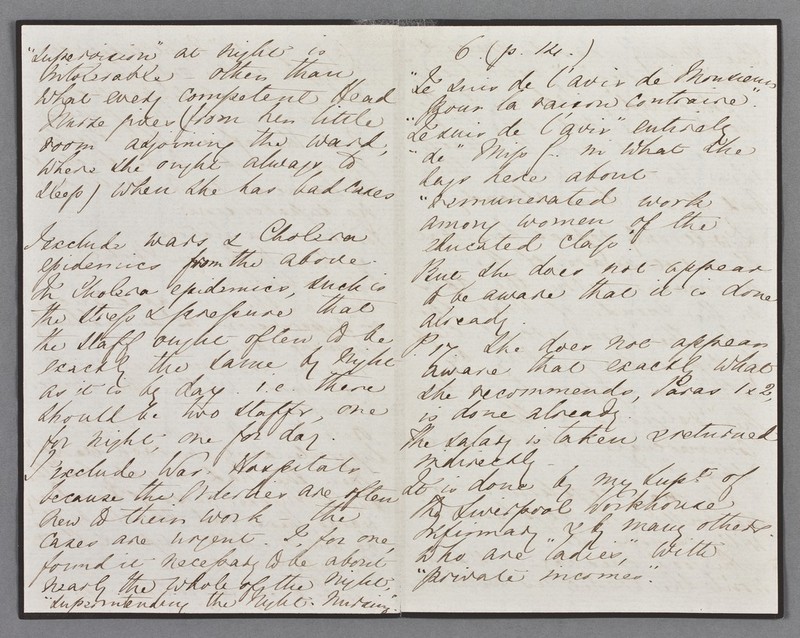 "Supervision" at night is
intolerable - other than
what every competent Head
Nurse gives (from her little
room adjoining the Ward,
where she ought always to
sleep) when she has bad cases
I exclude wars & Cholera
epidemics from the above.
In Cholera epidemics, such is
the stress & pressure that
the Staff ought often to be
exactly the same by Night
as it is by day. i.e. there
should be two staffs, one
for night, one for day.
I exclude War Hospitals -
because the Orderlies are often
new to their work - the
cases are urgent. I, for one,
found it necessary to be about
nearly the whole of the Night,
"superintending the Night-Nursing".
6 (p. 14.)
"Je suis de l'avis de Monsieur
pour la raison contraire."
"Je suis de l'avis" entirely
"de" Miss J. in what she
says here about
"remunerated work
among women of the
educated class".
But she does not appear
to be aware that it is done
already.
P. 17 She does not appear
aware that exactly what
she recommends, Paras 1 & 2,
is done already.
The salary is taken & returned
indirectly -
it is done by my Supt. of
the Liverpool Workhouse
Infirmary & by many others.
who are "ladies", with
"private incomes".